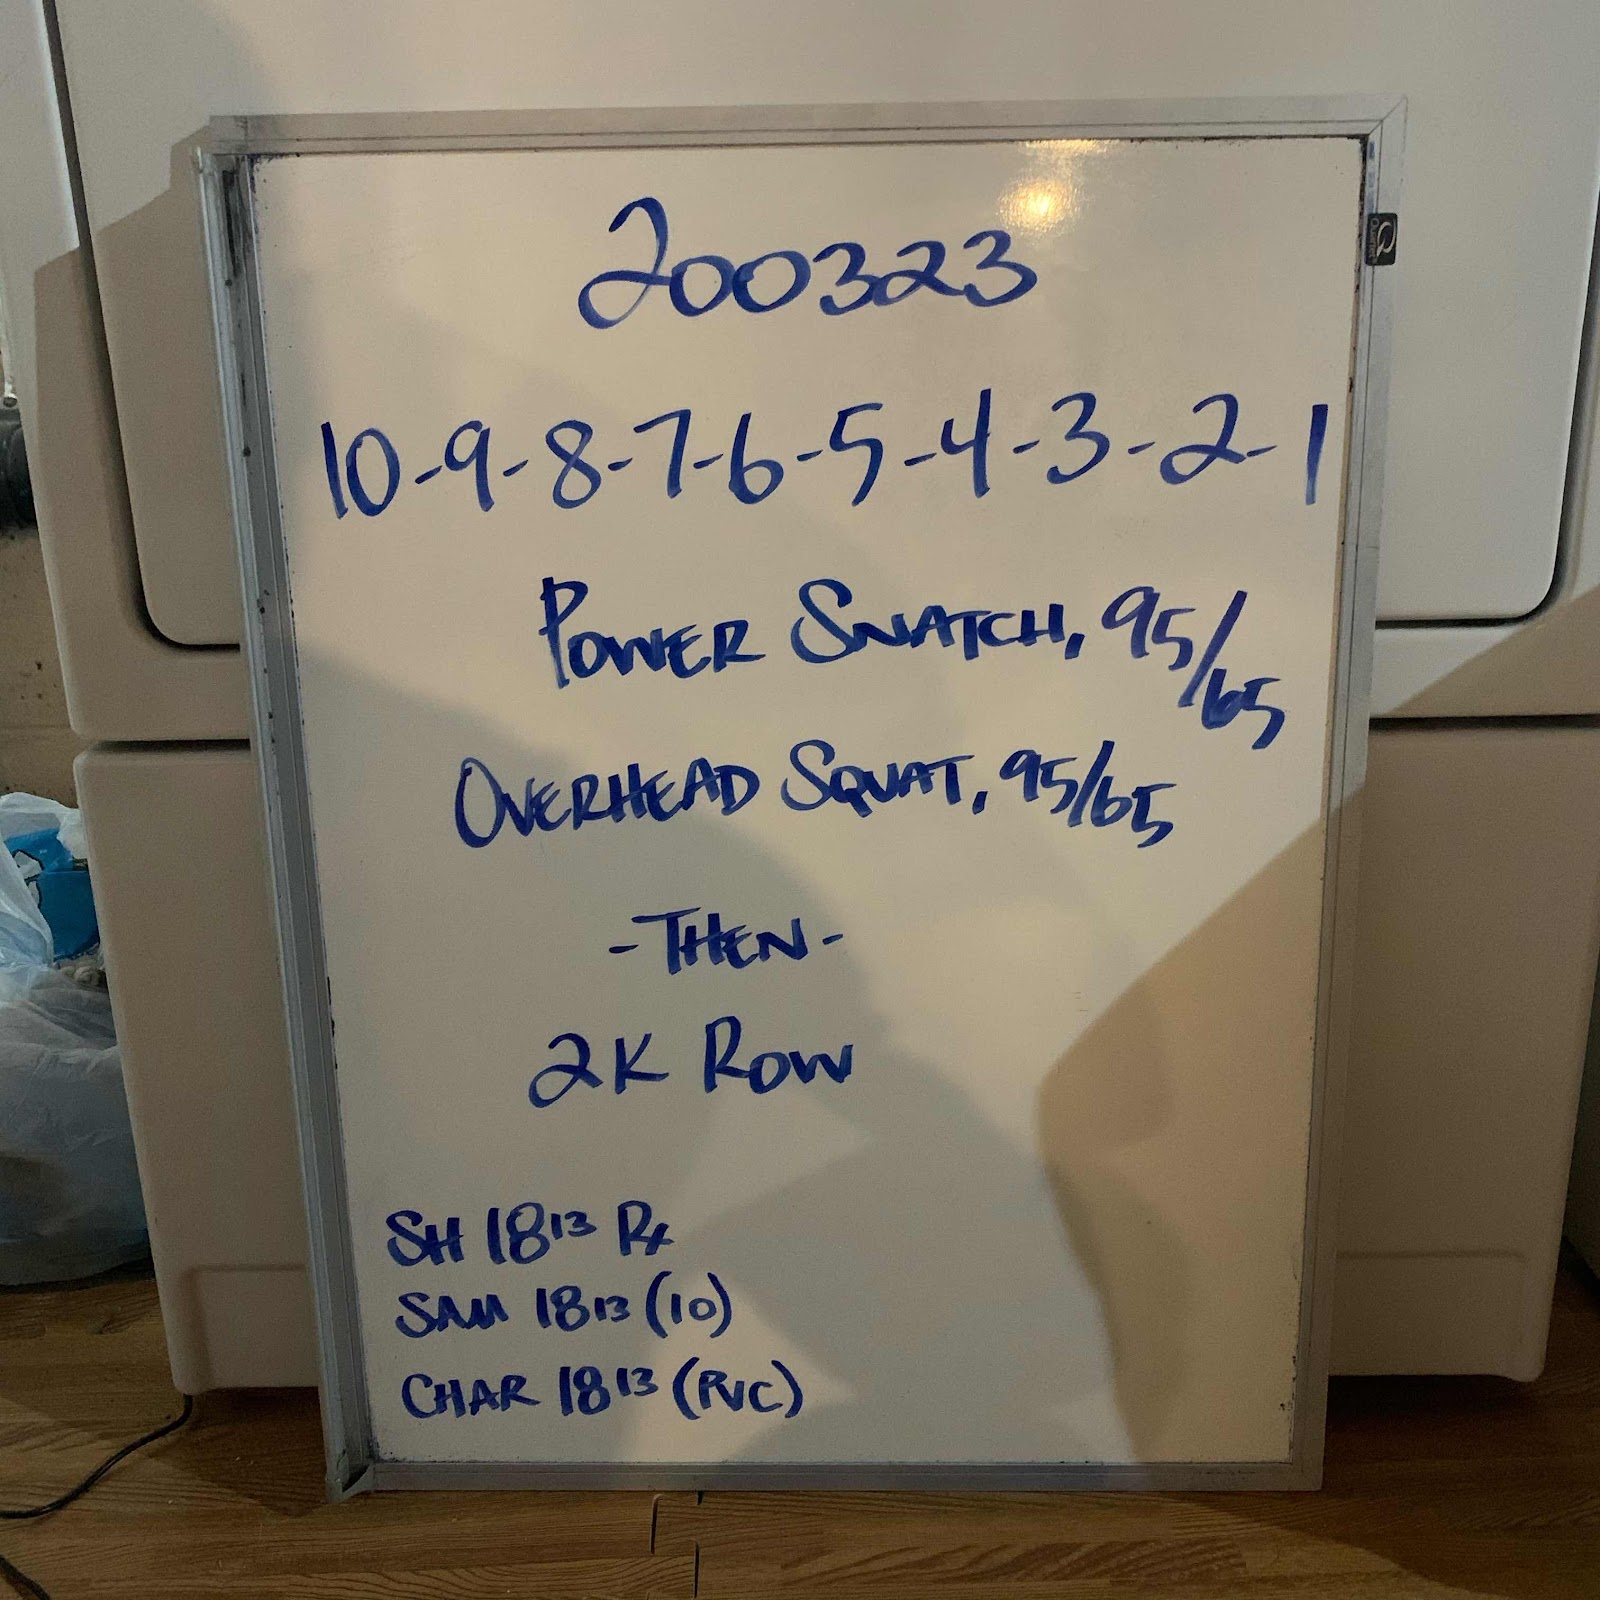 200323
10-9-8-7-6-5-4-3-2-1
POWER SNATCH, 95/65
OVERHEAD SQUAT, 95/65
-THEN-
2K ROW
SH 18¹³ Rx
SAM 18¹³ (10)
CHAR 18¹³ (PVC)